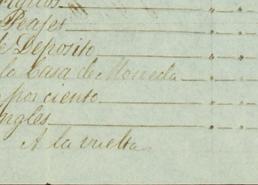 Peages
de Deposito " "
la Casa de Moneda " "
por ciento " "
Ingles " "
A la vuelta